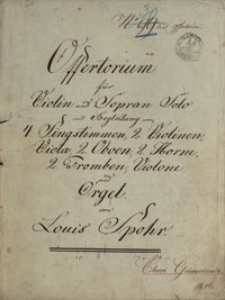 Offertorium
für
Violin und Sopran Solo
mit Begleitung von
4 Singstimmen, 2 Violinen,
Viola, 2 Oboen, 2 Horne,
2 Tromben, Violone
und
Orgel
von
Louis Spohr.
Chori